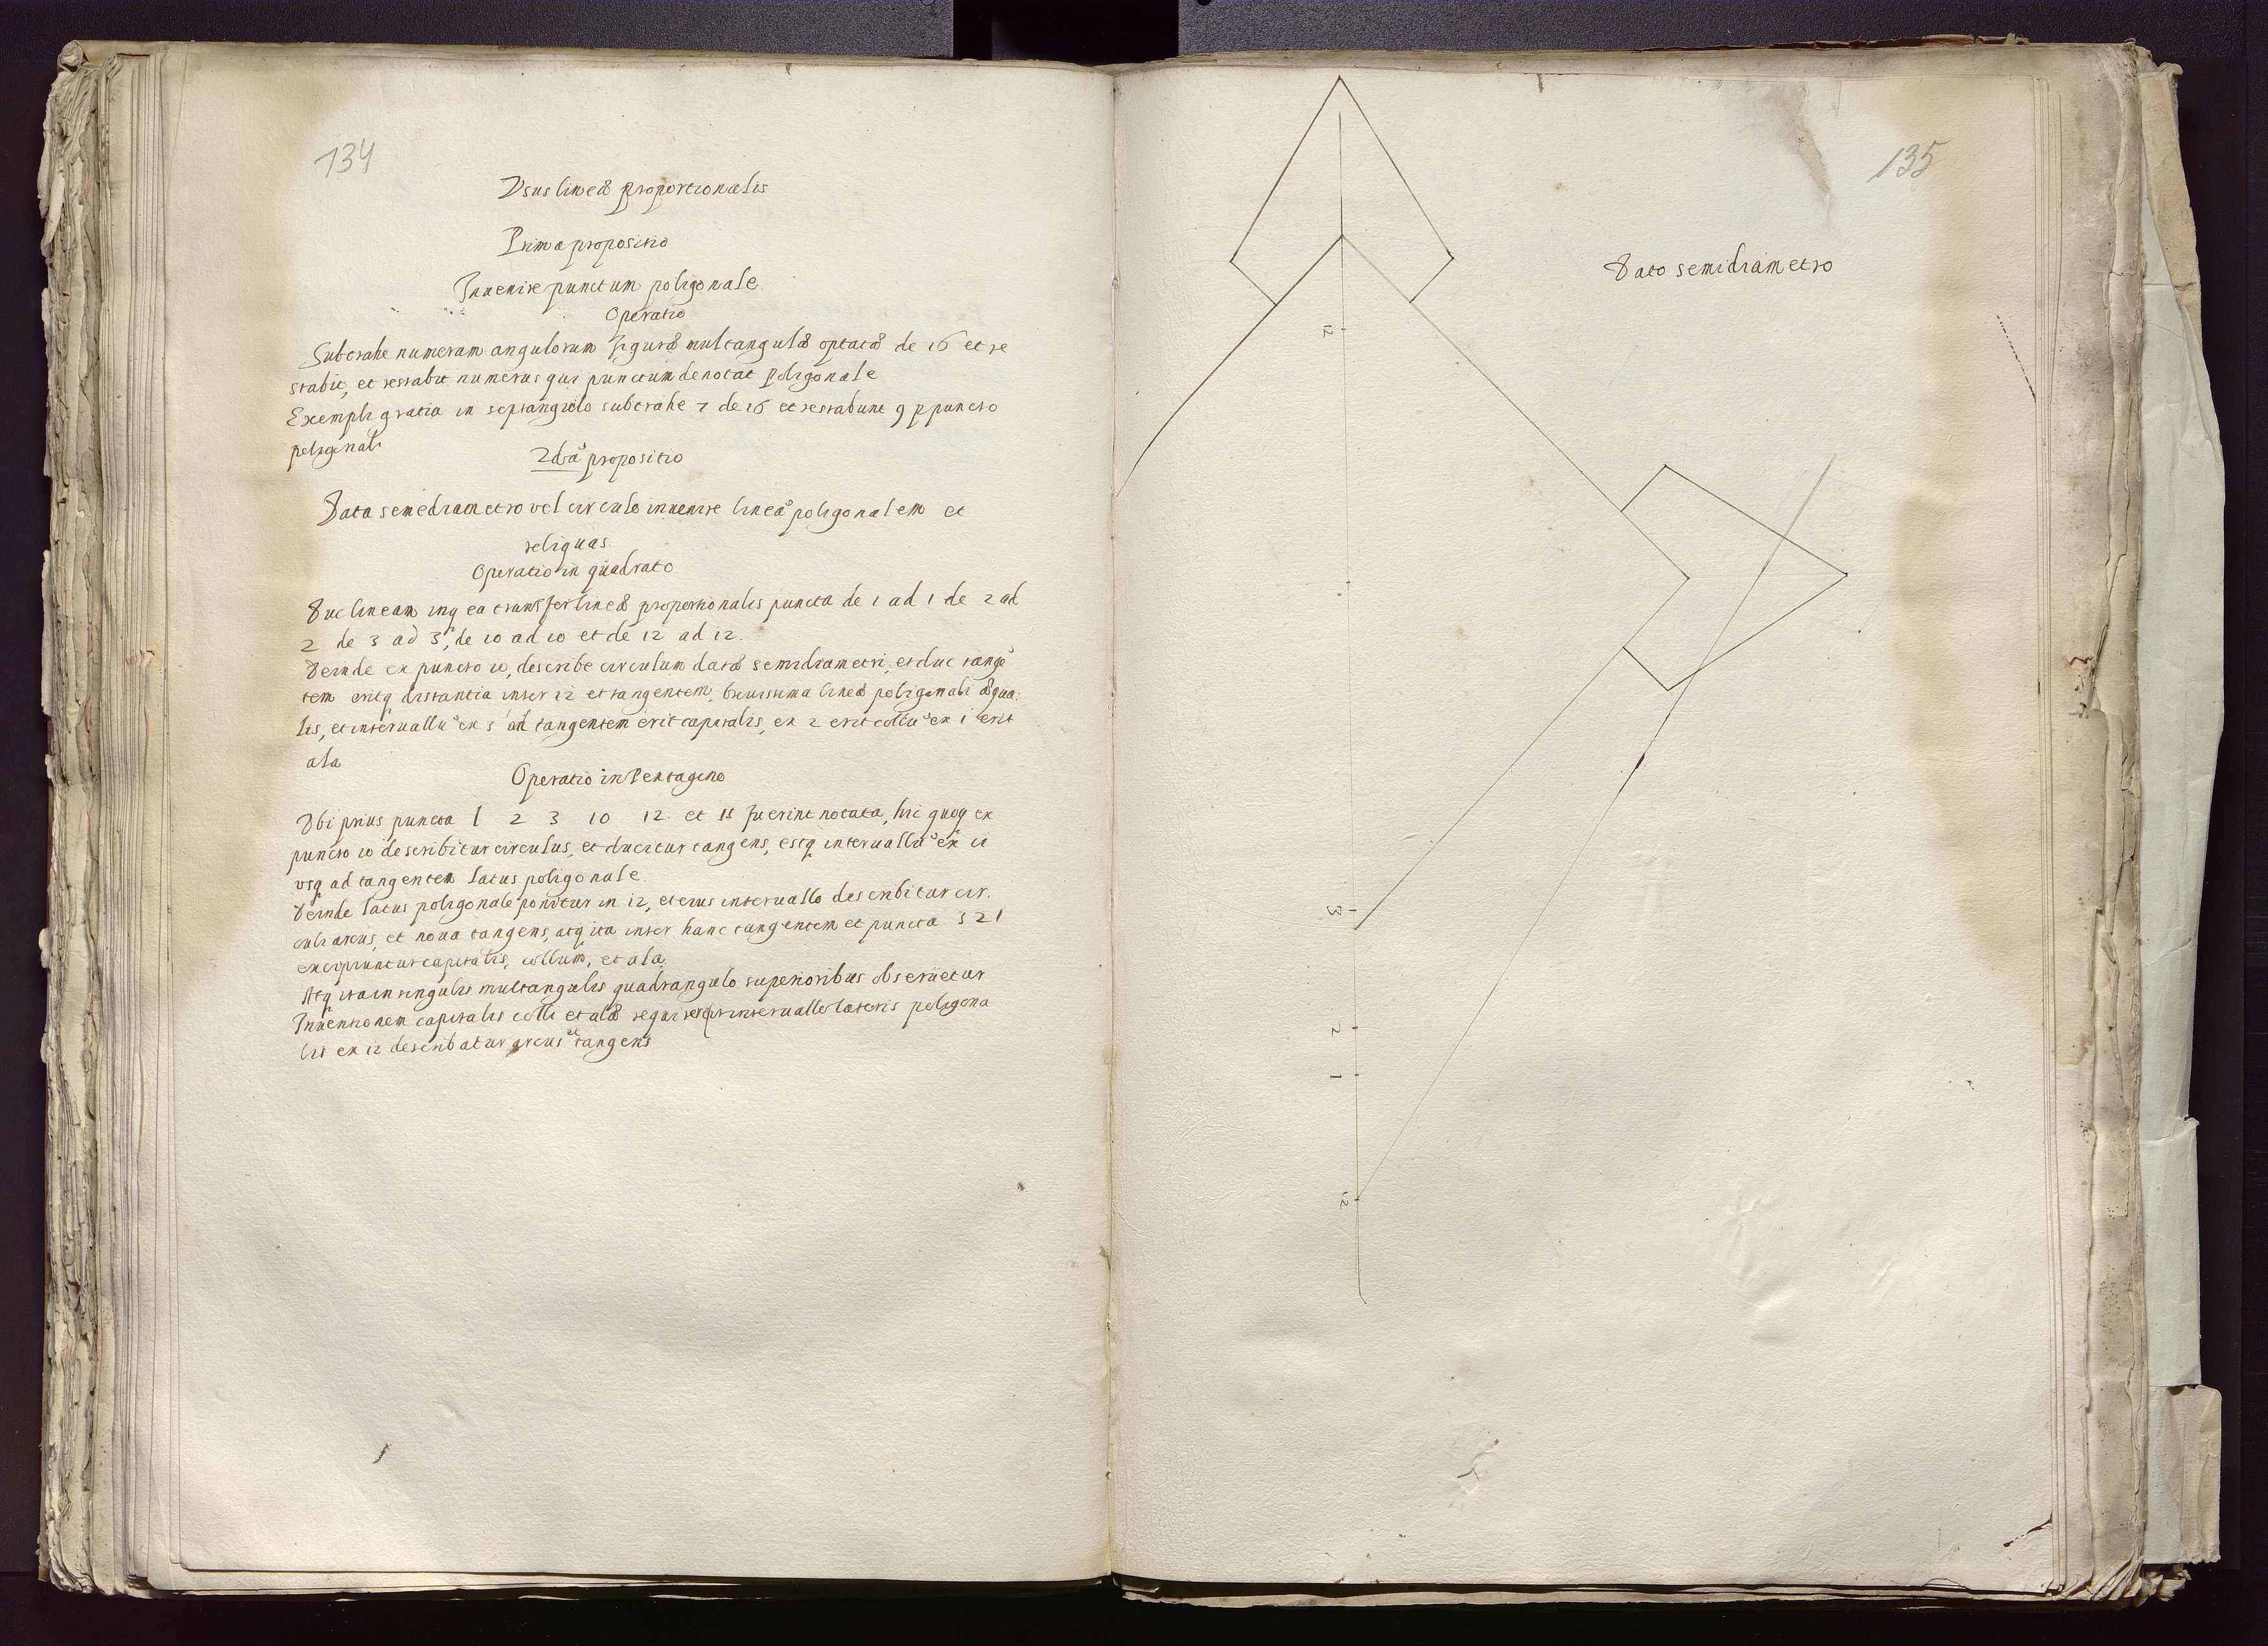 134
Vsus lineæ proportionalis
Prima propositio
Inuenire punctum poligonale
Operatio
Subtrahe numeram angulorum figuræ multangulæ optatæ de 16 et re
stabit, et restabit numerus qui punctum denotat poligonale
Exempli gratia in septangulo subtrahe 7 de 16 et restabunt 9 p puncto
poligonali
2da propositio
Data semediametro vel circulo inuenire lineā poligonalem et
reliquas
Operatio in quadrato
Duc lineam inq ea transfer lineæ proportionalis puncta de 1 ad 1 de 2 ad
2 de 3 ad 3, de 10 ad 10 et de 12 ad 12.
Deinde ex puncto 10, describe circulum datæ semidiametri, et duc tangē
tem eritq distantia inter 12 et tangentem, breuissima lineæ poligonali æqua:
lis, et interuallū ex 3 ad tangentem erit capitalis, ex 2 erit collū ex 1 erit
ala
Operatio in Pentagono
Vbi prius puncta 1 2 3 10 12 et 11 fuerint notata, hic quoq ex
puncto 10 describitur circulus, et ducitur tangens, estq interuallū ex 11
vsq ad tangentem latus poligonale
Deinde latus poligonale ponitur in 12, et eius interuallo describitur cir.
culi arcus, et noua tangens, atq ita inter hanc tangentem et puncta 3 2 1
excipiuntur capitalis, collum, et ala
Atq ita in singulis multangulis quadrangulo superioribus obseruetur
Inuentionem capitalis colli et alæ requirere interuallo lateris poligona
lis ex 12 describatur arcus et tangens
135
Dato semidiametro
12
3
2
1
12